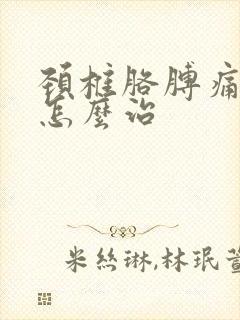 頚椎胳膊痛
怎麼治
米絲琳,林珉萱